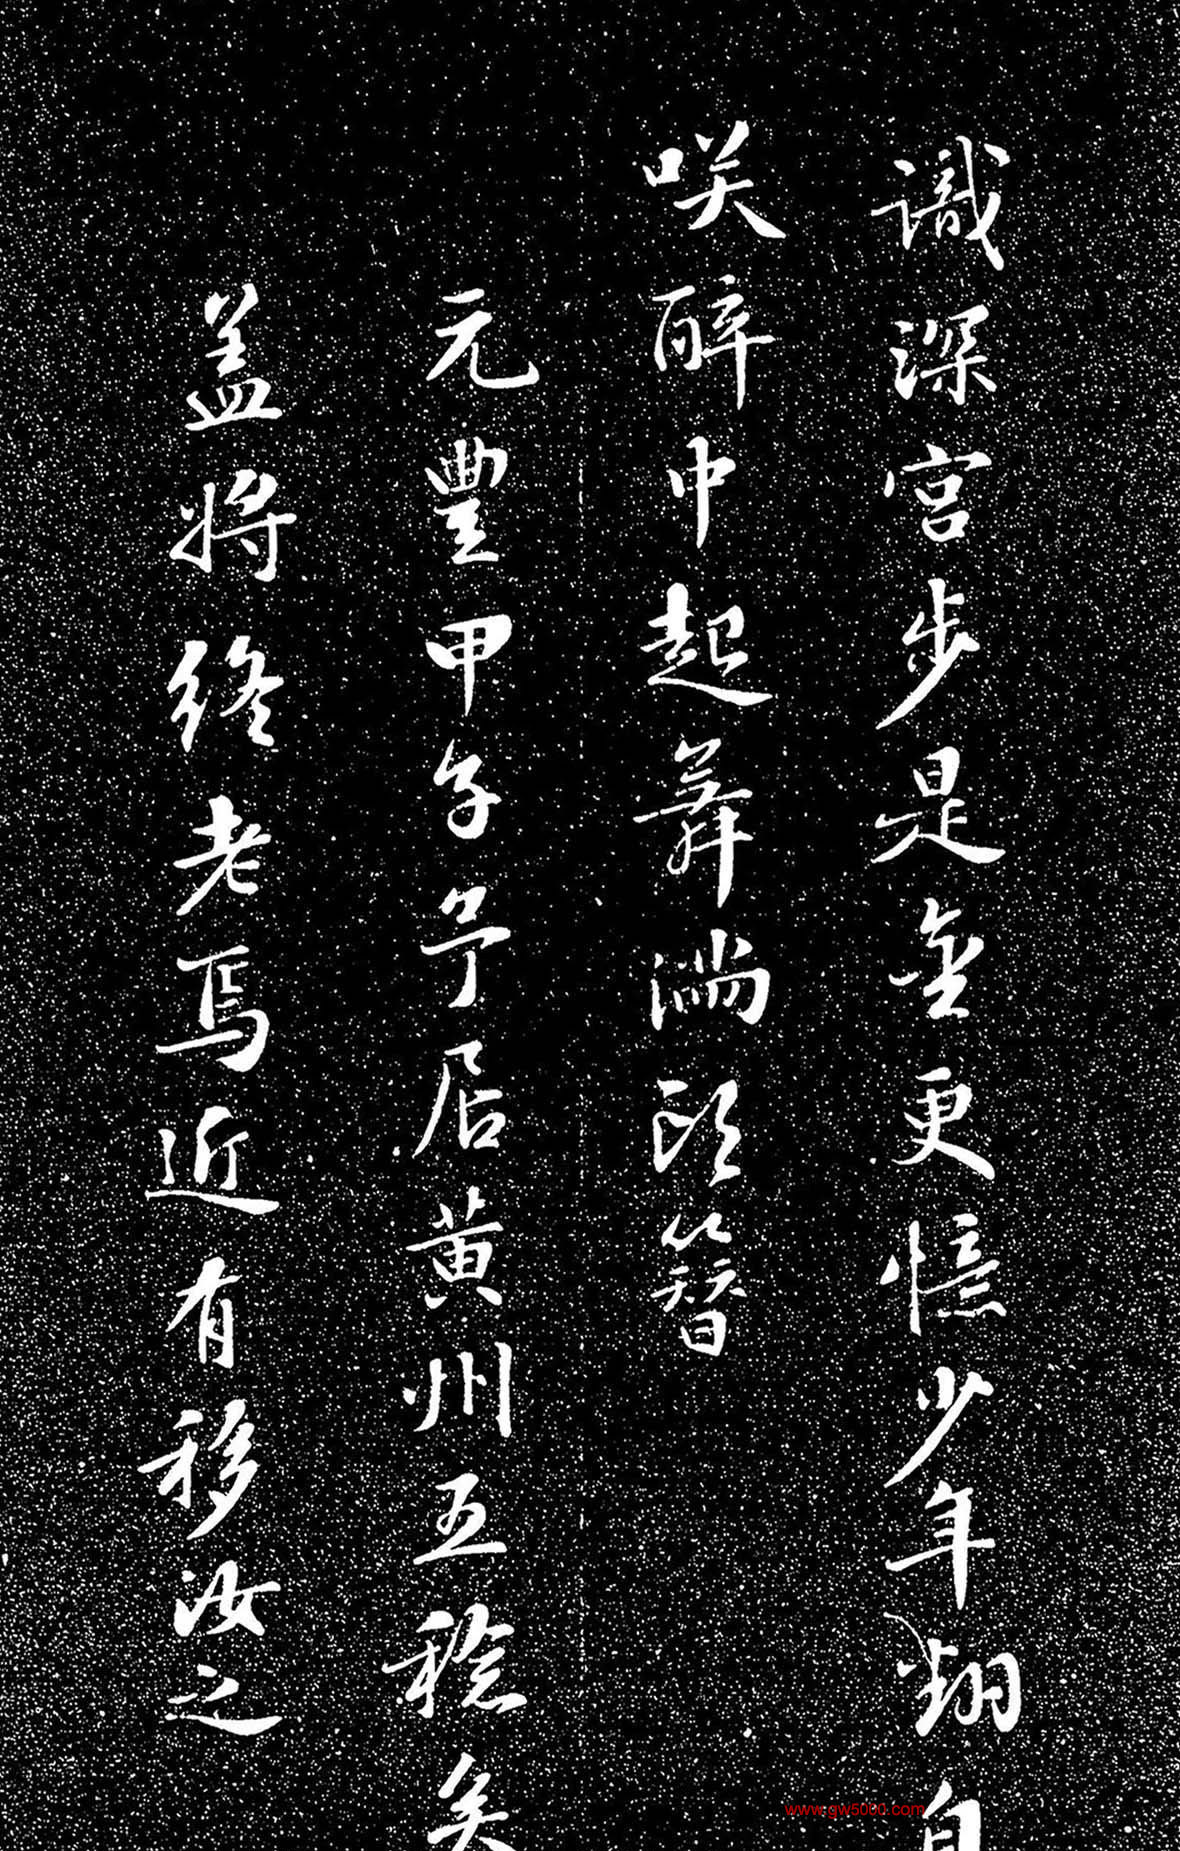 識深宮步是更憶少年翔自
咲醉中起舞滿頭簪
元豐甲子予居黃州五稔矣
盖將終老焉近有移汝之
www.gw5000.com